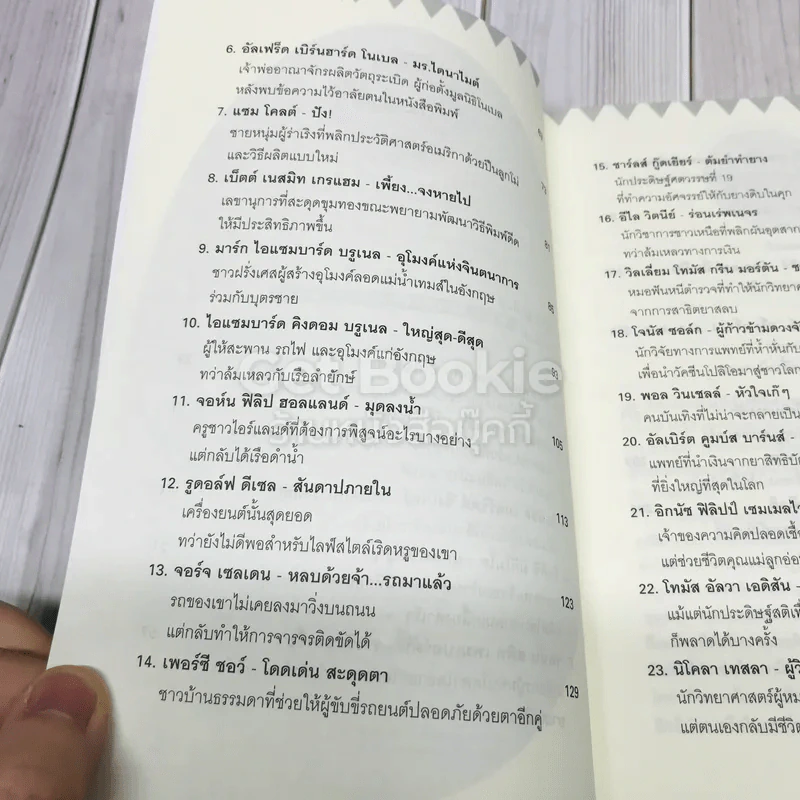 6. อัลเฟร็ด เบิร์นฮาร์ด โนเบล - มร.ไดนาไมต์
เจ้าพ่ออาณาจักรผลิตวัตถุระเบิด ผู้ก่อตั้งมูลนิธิโนเบล
หลังพบข้อความไว้อาลัยตนในหนังสือพิมพ์
7. แซม โคลต์ - ปัง!
ชายหนุ่มผู้ร่าเริงที่พลิกประวัติศาสตร์อเมริกาด้วยปืนลูกโม่
และวิธีผลิตแบบใหม่
8. เบ็ตต์ เนสมิท เกรแฮม - เพี้ยง...จงหายไป
เลขานุการที่สะดุดขุมทองขณะพยายามพัฒนาวิธีพิมพ์ดีด
ให้มีประสิทธิภาพขึ้น
9. มาร์ก ไอแซมบาร์ด บรูเนล - อุโมงค์แห่งจินตนาการ
ชาวฝรั่งเศสผู้สร้างอุโมงค์ลอดแม่น้ำเทมส์ในอังกฤษ
ร่วมกับบุตรชาย
10. ไอแซมบาร์ด คิงดอม บรูเนล - ใหญ่สุด-ดีสุด
ผู้ให้สะพาน รถไฟ และอุโมงค์แก่อังกฤษ
ทว่าล้มเหลวกับเรือลำยักษ์
11. จอห์น ฟิลิป ฮอลแลนด์ - มุดลงน้ำ 105
ครูชาวไอร์แลนด์ที่ต้องการพิสูจน์อะไรบางอย่าง
แต่กลับได้เรือดำน้ำ
12. รูดอล์ฟ ดีเซล - สันดาปภายใน 113
เครื่องยนต์นั้นสุดยอด
ทว่ายังไม่ดีพอสำหรับไลฟ์สไตล์เริดหรูของเขา
13. จอร์จ เซลเดน - หลบด้วยจ้า...รถมาแล้ว 123
รถของเขาไม่เคยลงมาวิ่งบนถนน
แต่กลับทำให้การจารจรติดขัดได้
14. เพอร์ซี ชอว์ - โดดเด่น สะดุดตา 129
ชาวบ้านธรรมดาที่ช่วยให้ผู้ขับขี่รถยนต์ปลอดภัยด้วยตาอีกคู่
15. ชาร์ลส์ กู๊ดเยียร์ - ต้มยำทำยาง
นักประดิษฐ์ศตวรรษที่ 19
ที่ทำความอัศจรรย์ให้กับยางดิบในคุก
16. อีไล วิตนีย์ - ร่อนเร่พเนจร
นักวิชาการชาวเหนือที่พลิกผันอุตสาก
ทว่าล้มเหลวทางการเงิน
17. วิลเลี่ยม โทมัส กรีน มอร์ตัน -
หมอฟันหนีตำรวจที่ทำให้นักวิทยาศ
จากการสาธิตยาสลบ
18. โจนัส ซอล์ก - ผู้ก้าวข้ามดวงจั
นักวิจัยทางการแพทย์ที่ห้ำหั่นกับ
เพื่อนำวัคซีนโปลิโอมาสู่ชาวโลก
19. พอล วินเชลล์ - หัวใจเก๊ๆ
คนบันเทิงที่ไม่น่าจะกลายเป็น
20. อัลเบิร์ต คูมบ์ส บาร์นส์ -
แพทย์ที่นำเงินจากยาสิทธิบัต
ที่ยิ่งใหญ่ที่สุดในโลก
21. อิกนัซ ฟิลิปป์ เซมเมลไว
เจ้าของความคิดปลอดเชื้อ
แต่ช่วยชีวิตคุณแม่ลูกอ่อน
22. โทมัส อัลวา เอดิสัน -
แม้แต่นักประดิษฐ์สติเฟื่
ก็พลาดได้บางครั้ง
23. นิโคลา เทสลา - ผู้วิ
นักวิทยาศาสตร์ผู้หม
แต่ตนเองกลับมีชีวิต
Get Bookie
ร้านหนังสือบุ๊คกี้